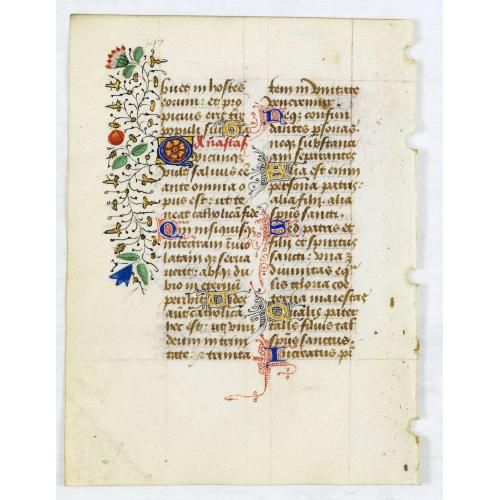 buet in hostes
eorum: et pro
picius erit t're
populi sui
Anastasi
Quicumq;
vult salvus e e
ante omnia o
pus est: ut te
neat catholicā fidē
Quam nisi quisq;
integram invio
latamq; serva
verit: absq; du
bio in eternū
peribit. Fides
aut catholica
hec est: ut unū
deum in trini
tate: et trinita
tem in unitate
veneremur.
Neq; confun
dantes personas
neq; substan
tiam separantes.
Alia est enim
persona patris:
alia filii: alia
spūs sancti.
Sed patris et
filii et spiritus
sancti: una ē
divinitas eq̄
lis gloria coe
terna maiestas
Qualis pater
talis filius tal
spūs sanctus
Increatus pr̄